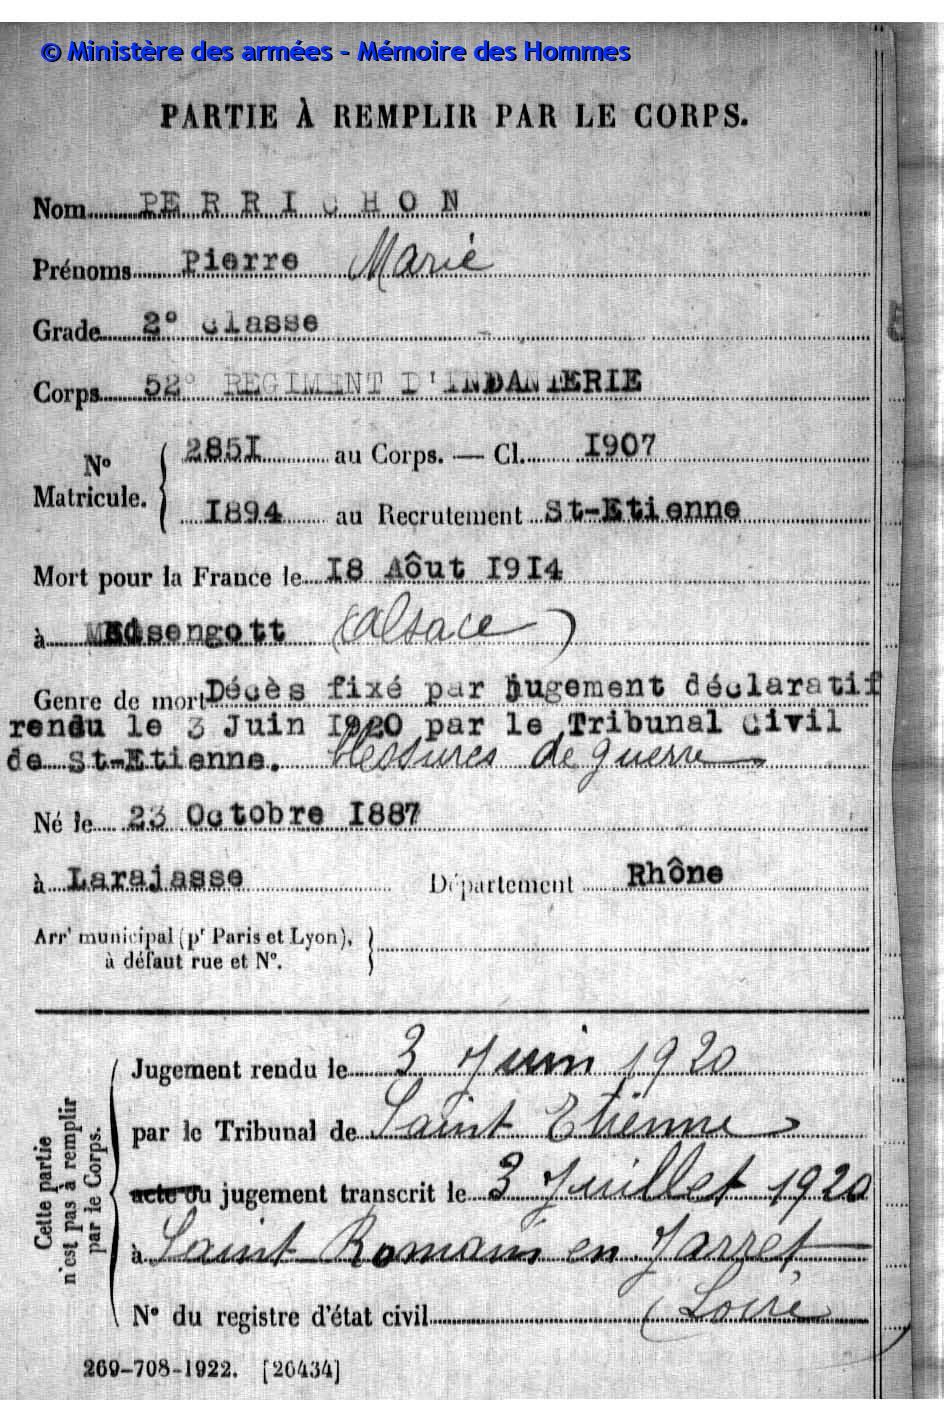 © Ministère des armées - Mémoire des Hommes
PARTIE À REMPLIR PAR LE CORPS.
Nom PERRICHON
Prénoms Pierre Marie
Grade 2° classe
Corps 52° REGIMENT D'INDANTERIE
N° Matricule. { 2851 au Corps. — Cl. 1907
1894 au Recrutement St-Etienne
Mort pour la France le 18 Aôut 1914
à (Alsace)
Genre de mort Décès fixé par jugement déclaratif
rendu le 3 Juin 1920 par le Tribunal Civil
de St-Etienne. blessures de guerre
Né le 23 Octobre 1887
à Larajasse Département Rhône
Arrᵗ municipal (pʳ Paris et Lyon),
à défaut rue et N°.
Cette partie n'est pas à remplir par le Corps.
Jugement rendu le 3 Juin 1920
par le Tribunal de Saint Etienne
acte ou jugement transcrit le 3 Juillet 1920
à Saint Romain en Jarret
N° du registre d'état civil (Loire)
269-708-1922. [26434]